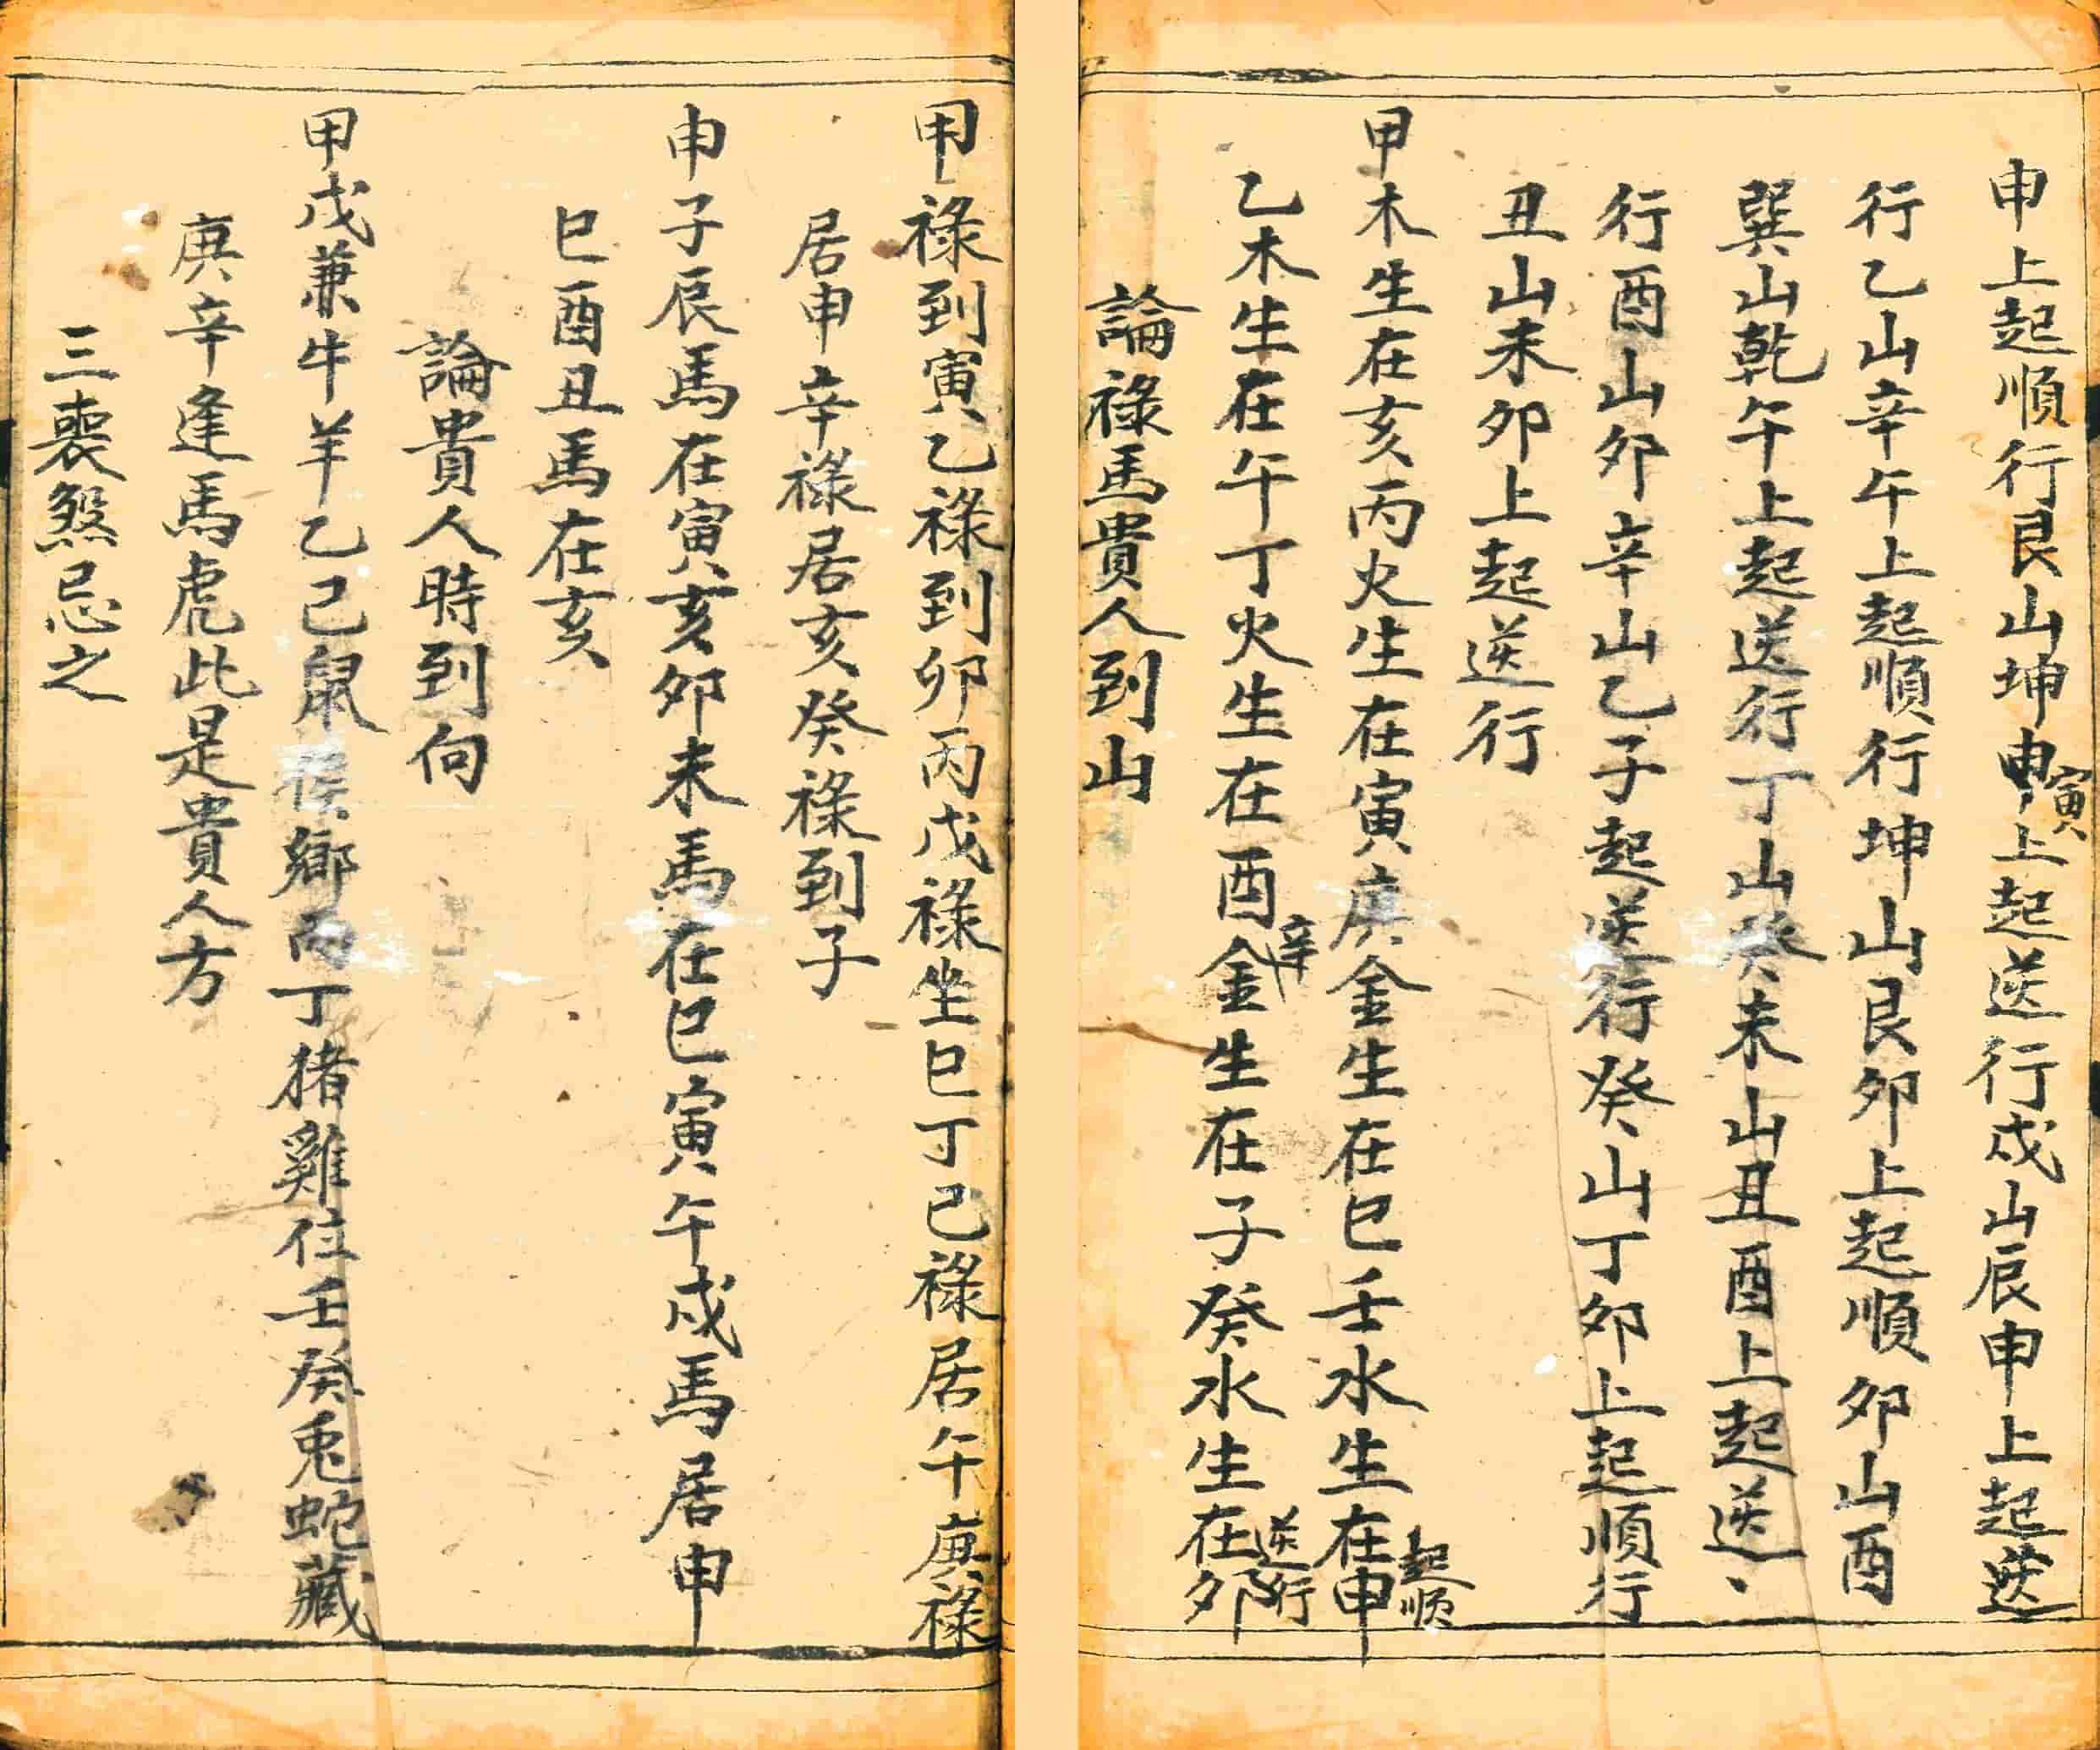 申上起順行艮山坤申寅上起送行戍山辰申上起送
行乙山辛午上起順行坤山艮卯上起順卯山酉
巽山乾午上起送行丁山癸未山丑酉上起送、
行酉山卯辛山乙子起送行癸山丁卯上起順行
丑山未卯上起送行
甲木生在亥丙火生在寅庚金生在巳壬水生在申起順
乙木生在午丁火生在酉辛金生在子癸水生在卯送行
論祿馬貴人到山
甲祿到寅乙祿到卯丙戊祿坐巳丁己祿居午庚祿
居申辛祿居亥癸祿到子
申子辰馬在寅亥卯未馬在巳寅午戍馬居申
巳酉丑馬在亥
論貴人時到向
甲戊兼牛羊乙己鼠猴鄉丙丁猪雞位壬癸兎蛇藏
庚辛逢馬虎此是貴人方
三喪煞忌之